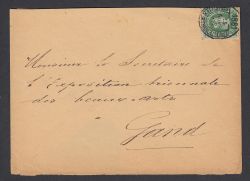 Monsieur le Secrétaire de
l'Exposition triennale
des beaux-arts
Gand